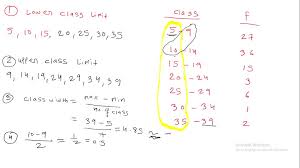 ① Lower class Limit
5, 10, 15, 20, 25, 30, 35
② upper class Limit
9, 14, 19, 24, 29, 34, 39
③ class width = max - min / no of classes
39 - 5 / 7 = 4.85 ≈
④ 10-9 / 2 = 1/2 = 0.5
class F
5 - 9 27
10 - 14 36
15 - 19 15
20 - 24
25 - 29
30 - 34 1
35 - 39 2